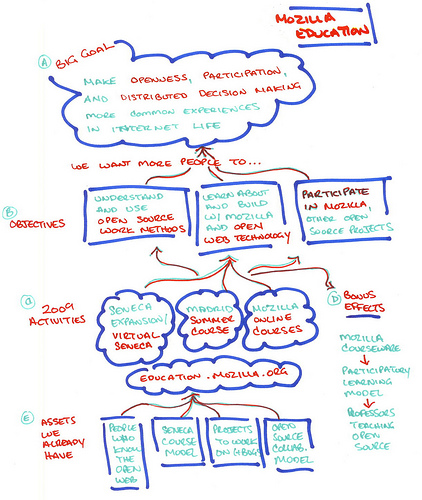 MOZILLA
EDUCATION
A BIG GOAL
MAKE OPENNESS, PARTICIPATION,
AND DISTRIBUTED DECISION MAKING
MORE COMMON EXPERIENCES
IN INTERNET LIFE
WE WANT MORE PEOPLE TO...
B OBJECTIVES
UNDERSTAND
AND USE
OPEN SOURCE
WORK METHODS
LEARN ABOUT
AND BUILD
W/ MOZILLA
AND OPEN
WEB TECHNOLOGY
PARTICIPATE
IN MOZILLA,
OTHER OPEN
SOURCE PROJECTS
C 2009
ACTIVITIES
SENECA
EXPANSION/
VIRTUAL
SENECA
MADRID
SUMMER
COURSE
MOZILLA
ONLINE
COURSES
D BONUS
EFFECTS
MOZILLA
COURSEWARE
PARTICIPATORY
LEARNING
MODEL
PROFESSORS
TEACHING
OPEN
SOURCE
EDUCATION.MOZILLA.ORG
E ASSETS
WE
ALREADY
HAVE
PEOPLE
WHO
KNOW
THE
OPEN
WEB
SENECA
COURSE
MODEL
PROJECTS
TO WORK
ON (+BUGS)
OPEN
SOURCE
COLLAB.
MODEL